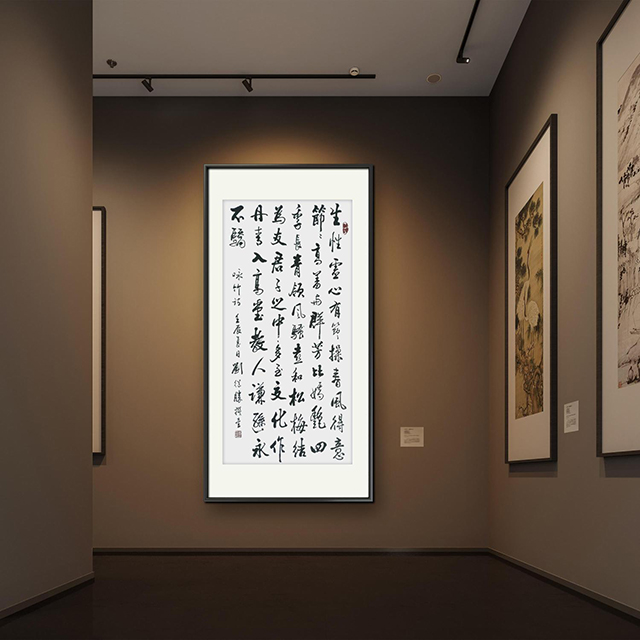 生性虛心有節操春風得意
節〻高羞与群芳比嬌艷四
季長青領風騷喜和松梅結
為友君子之中多至交化作
丹青入高堂教人謙遜永
不驕
咏竹诗 壬辰夏日劉撰書